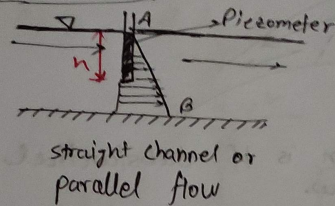 A
Piezometer
h
B
straight channel or
parallel flow